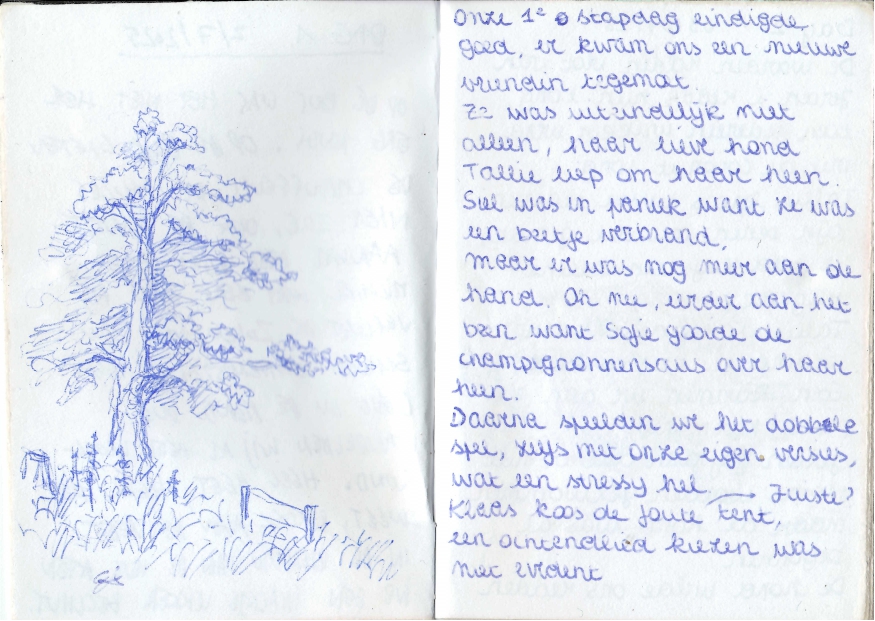 Onze 1e stapdag eindigde
goed, er kwam ons een nieuwe
vriendin tegemoet
Ze was uiteindelijk niet
alleen, haar lieve hond
Tallie liep om haar heen.
Siel was in paniek want ze was
een beetje verbrand,
maar er was nog meer aan de
hand. Oh nee, eerder aan het
been want Sofie goide de
champignonnensaus over haar
heen.
Daarna speelden we het dobbele
spel, zelfs met onze eigen versies,
wat een stressy hel → Juiste?
Klaas koos de foute tent,
een ochtendlied kiezen was
niet evident